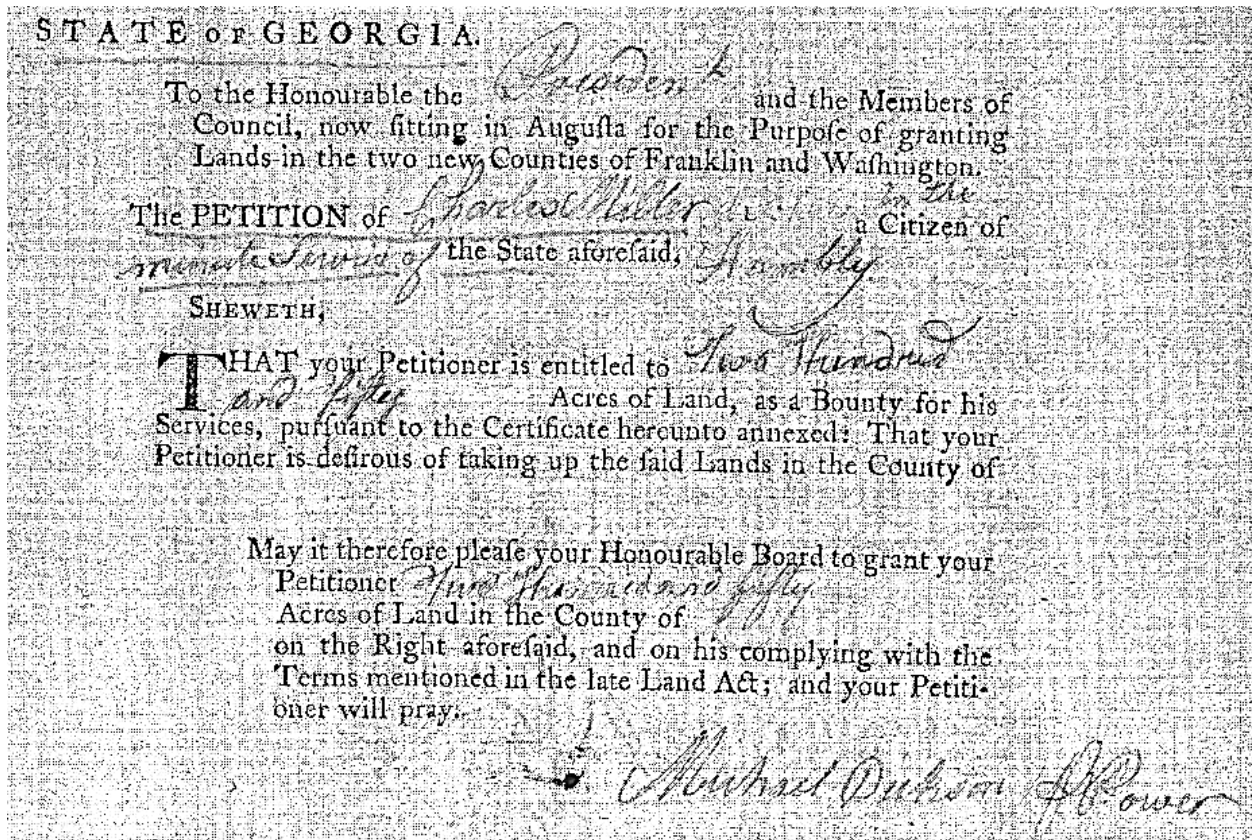 STATE OF GEORGIA.
To the Honourable the President and the Members of
Council, now ſitting in Auguſta for the Purpoſe of granting
Lands in the two new Counties of Franklin and Waſhington.
in the
The PETITION of Charles Miller a Citizen of
minute Service of the State aforeſaid, Humbly
SHEWETH,
THAT your Petitioner is entitled to Two Hundred
and fifty Acres of Land, as a Bounty for his
Services, purſuant to the Certificate hereunto annexed: That your
Petitioner is deſirous of taking up the ſaid Lands in the County of
May it therefore pleaſe your Honourable Board to grant your
Petitioner Two Hundred and fifty
Acres of Land in the County of
on the Right aforeſaid, and on his complying with the
Terms mentioned in the late Land Act; and your Petiti-
oner will pray.
Michael Dickson Power